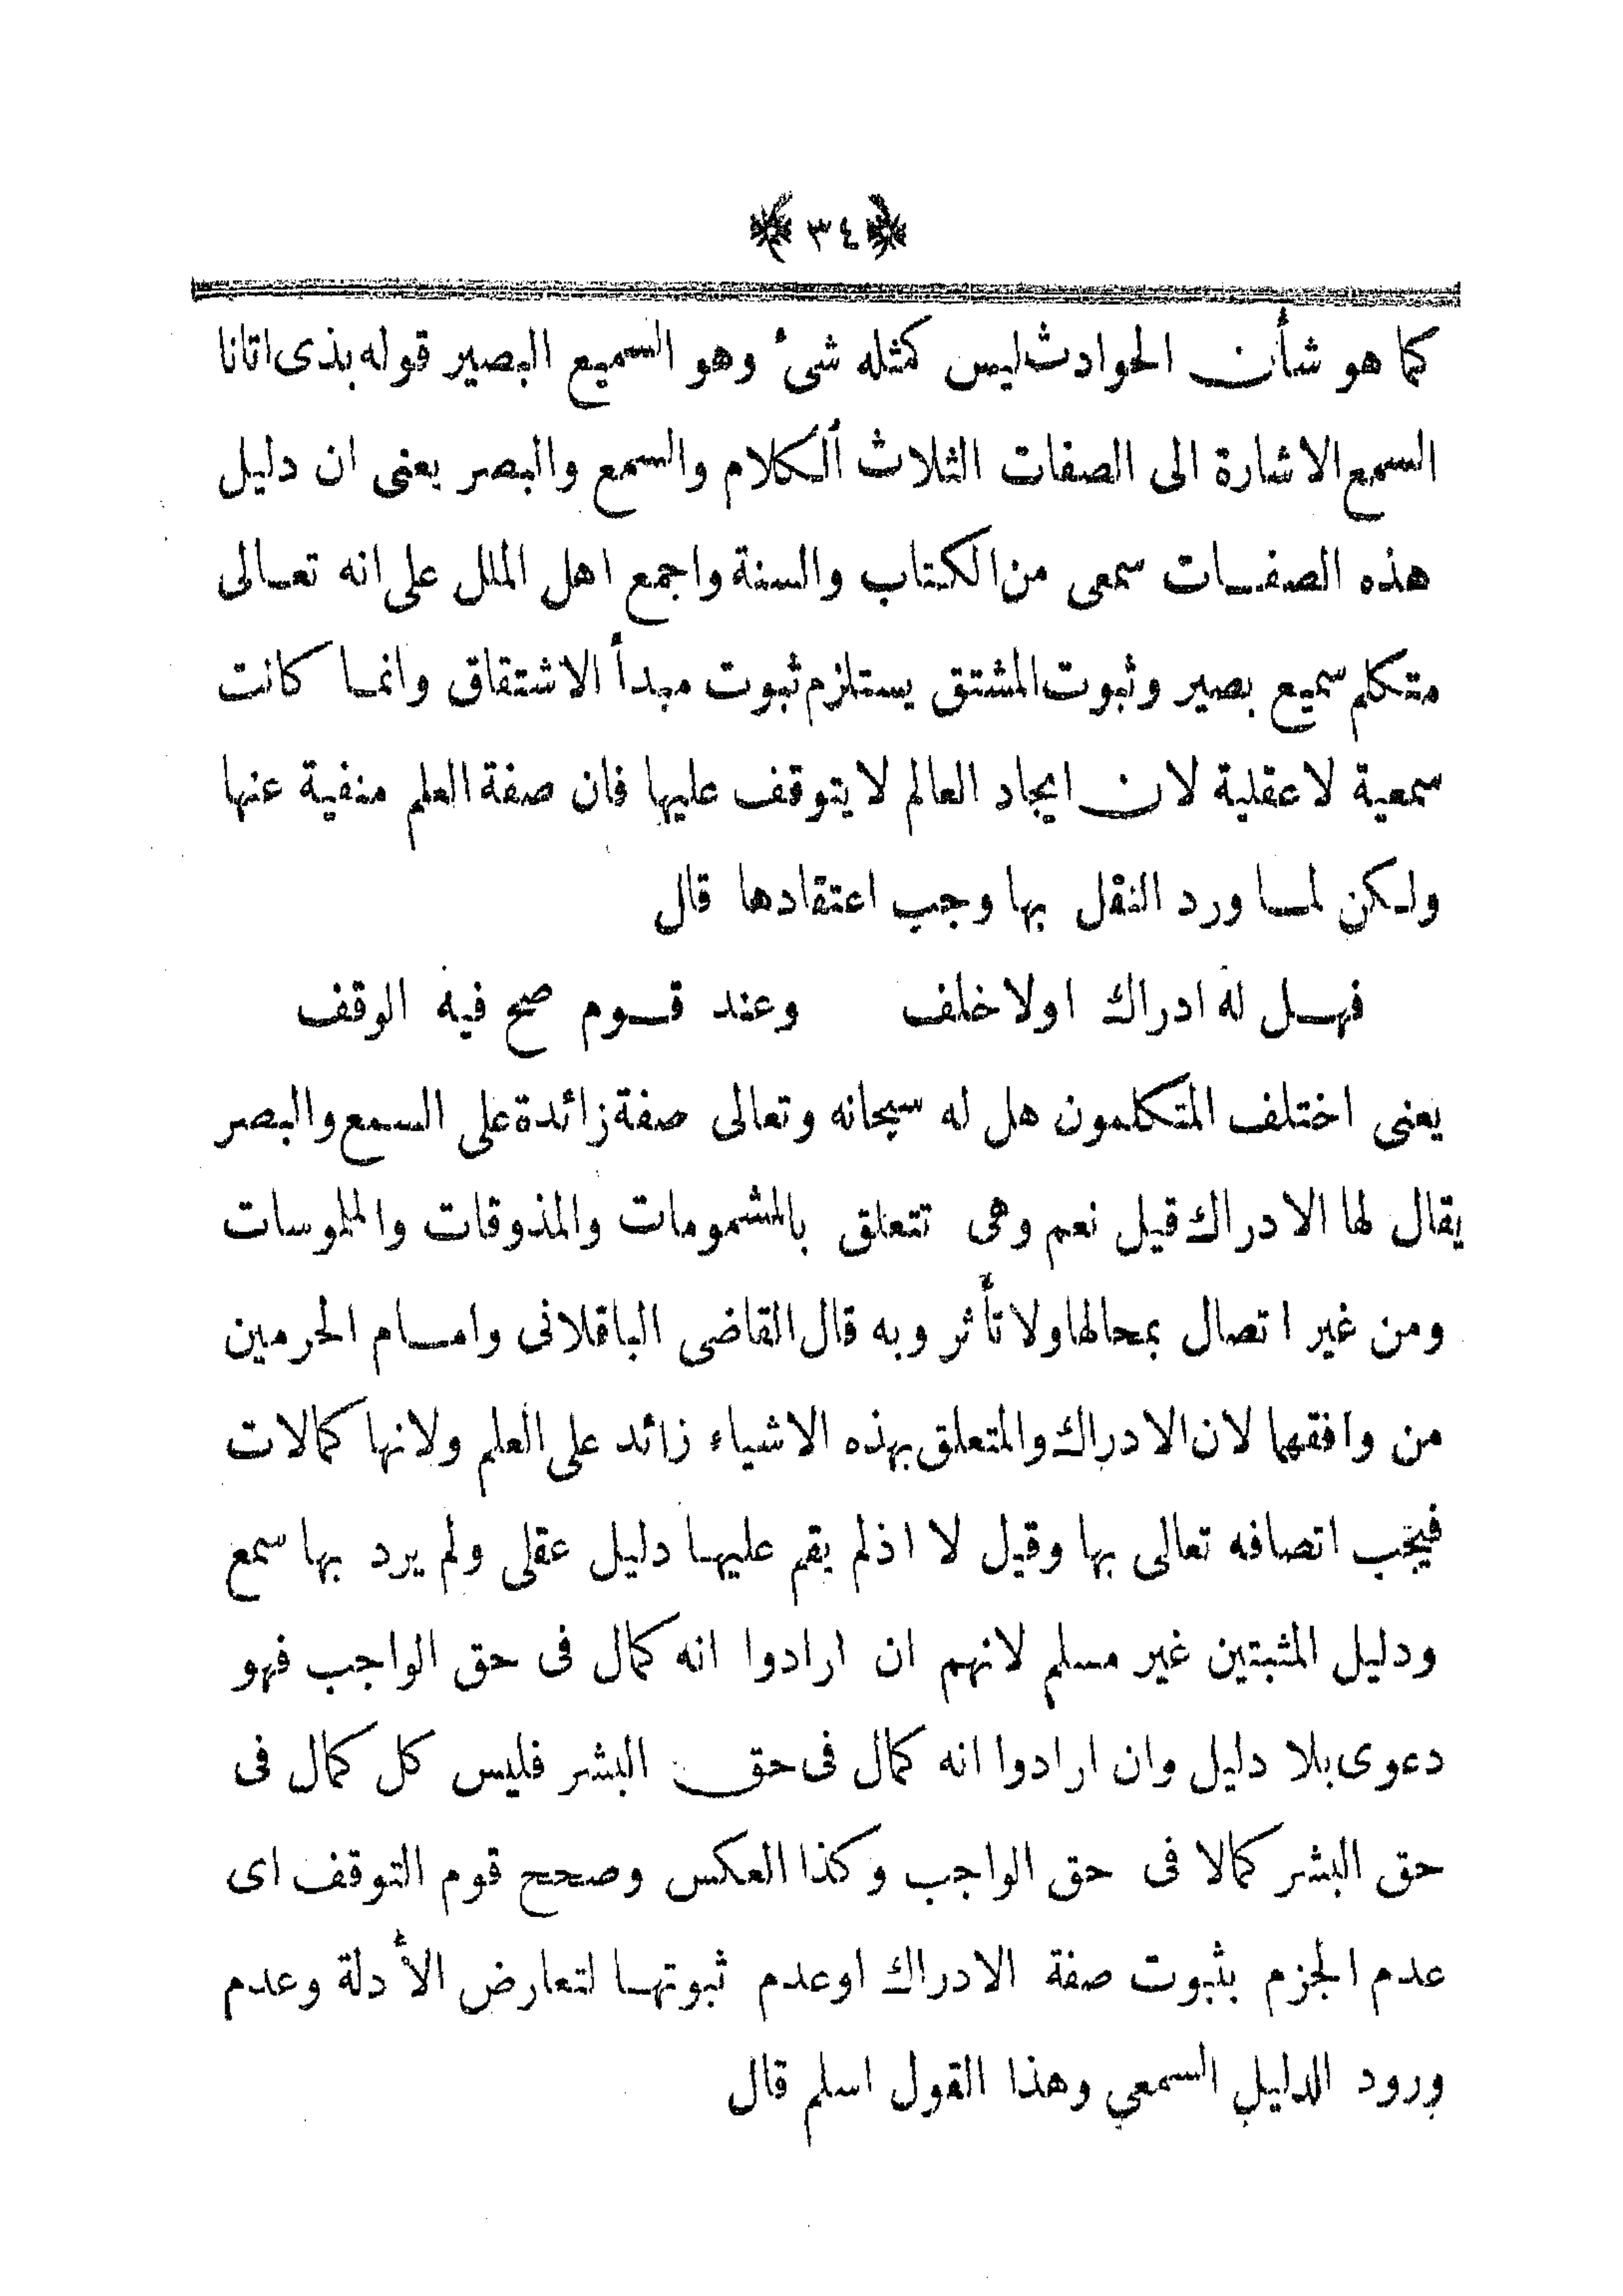 ٣٤
كما هو شأن الحوادث ليس كمثله شئ وهو السميع البصير قوله بذى اتانا
السمع الاشارة الى الصفات الثلاث الكلام والسمع والبصر يعنى ان دليل
هذه الصفات سمعى من الكتاب والسنة واجمع اهل الملل على انه تعالى
متكلم سميع بصير وثبوت المشتق يستلزم ثبوت مبدأ الاشتقاق وانما كانت
سمعية لا عقلية لان ايجاد العالم لا يتوقف عليها فان صفة العلم منفية عنها
ولكن لما ورد النقل بها وجب اعتقادها قال
فهل له ادراك اولا خلف وعند قوم صح فيه الوقف
يعنى اختلف المتكلمون هل له سبحانه وتعالى صفة زائدة على السمع والبصر
يقال لها الادراك قيل نعم وهى تتعلق بالمشمومات والمذوقات والملموسات
ومن غير اتصال بمحالها ولا تأثر وبه قال القاضى الباقلانى وامام الحرمين
من وافقهما لان الادراك والمتعلق بهذه الاشياء زائد على العلم ولانها كمالات
فيجب اتصافه تعالى بها وقيل لا اذ لم يقم عليها دليل عقلى ولم يرد بها سمع
ودليل المثبتين غير مسلم لانهم ان ارادوا انه كمال فى حق الواجب فهو
دعوى بلا دليل وان ارادوا انه كمال فى حق البشر فليس كل كمال فى
حق البشر كمالا فى حق الواجب وكذا العكس وصحح قوم التوقف اى
عدم الجزم بثبوت صفة الادراك اوعدم ثبوتها لتعارض الأدلة وعدم
ورود الدليل السمعي وهذا القول اسلم قال